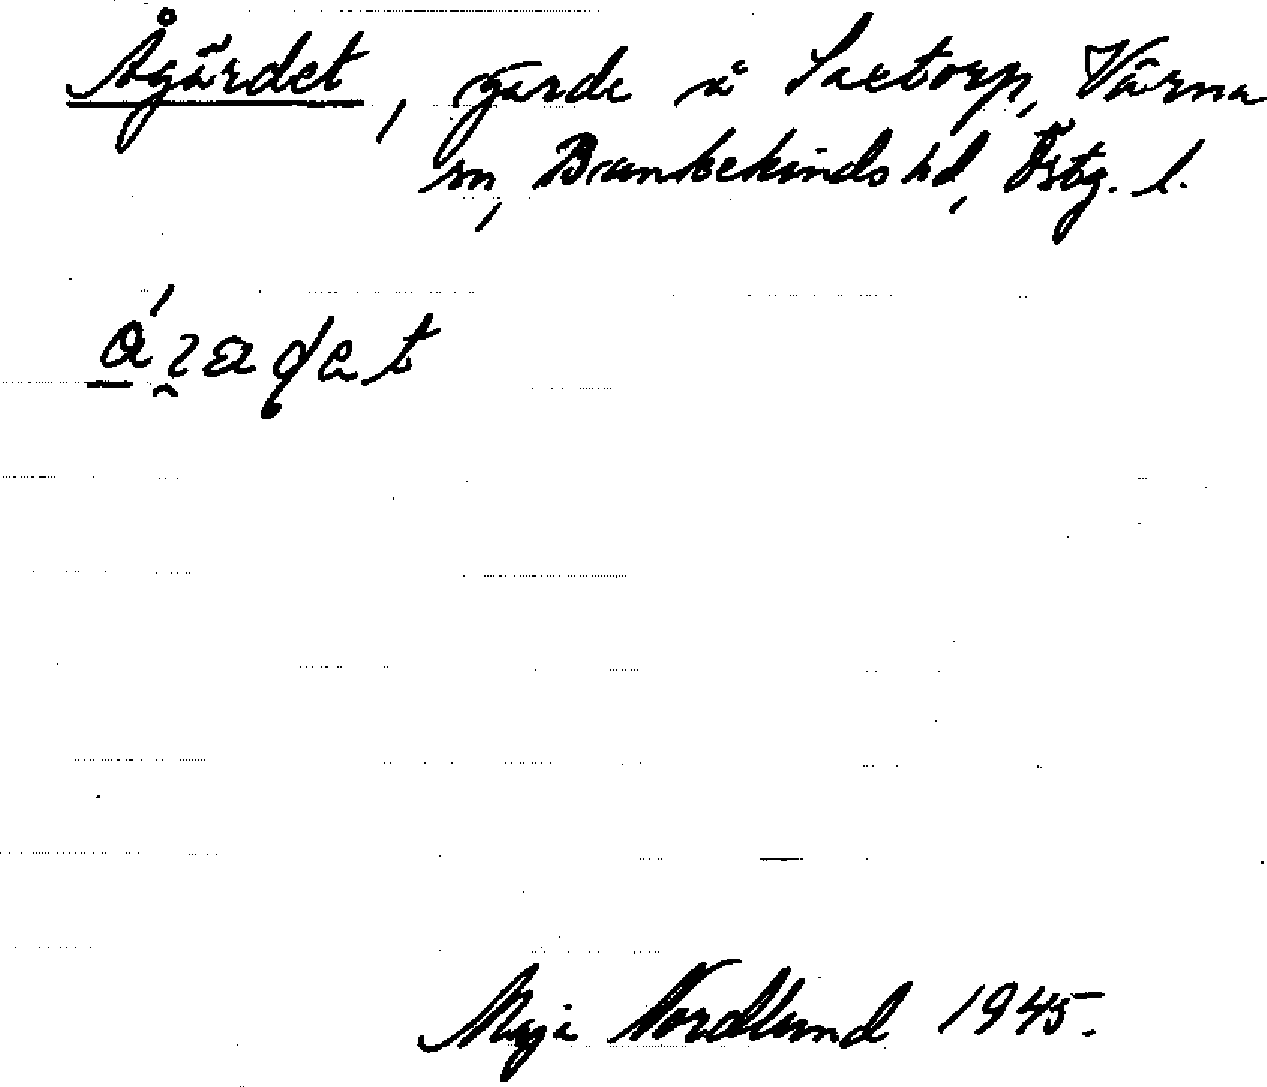 Ågärdet, gärde å Saetorp, Värna
sn, Bankekinds hd, Östg. l.
Maja Nordlund 1945.